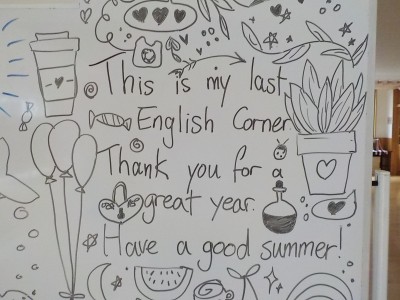 This is my last
English Corner
Thank you for a
great year.
Have a good summer!